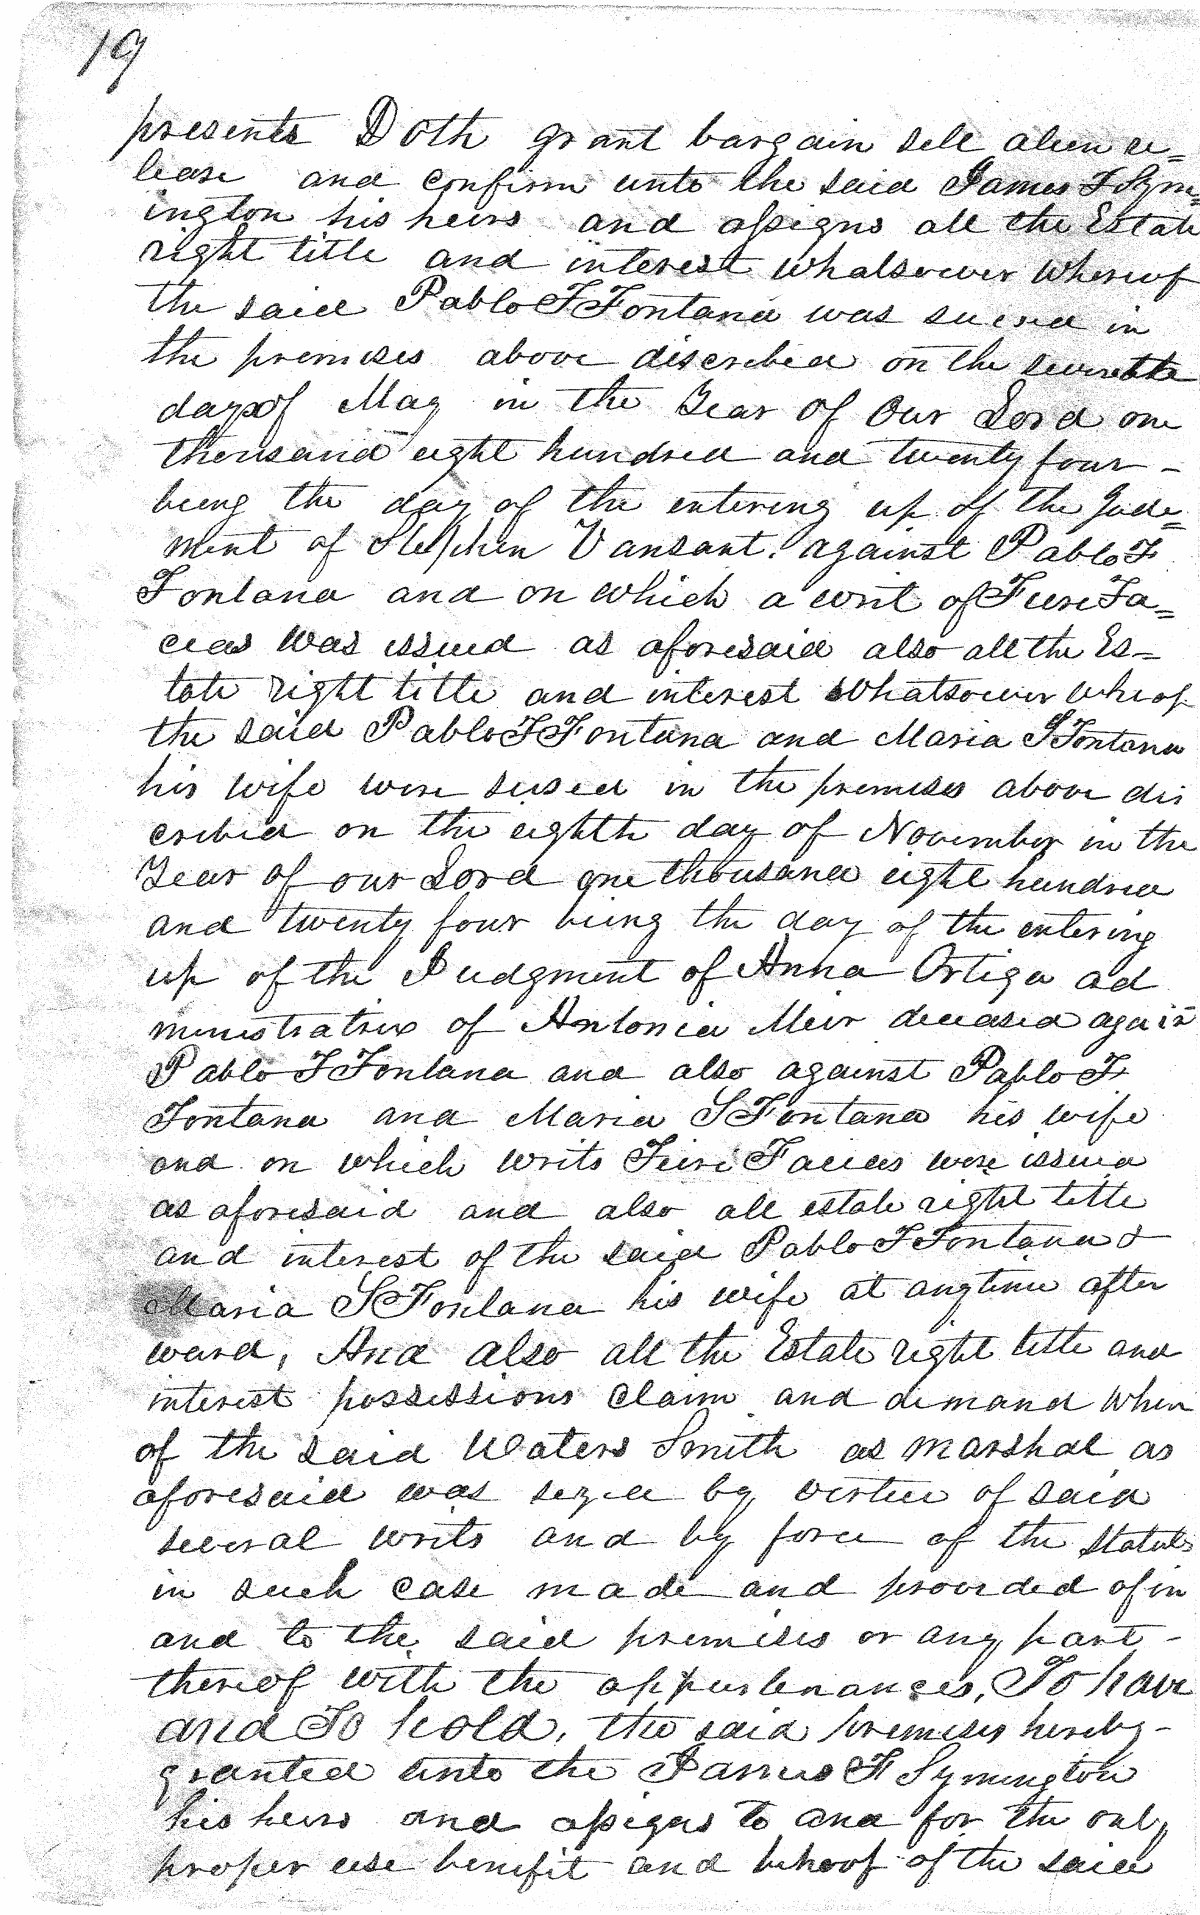 19
presents Doth grant bargain sell alien re=
lease and confirm unto the said James F Sym=
ington his heirs and assigns all the Estate
right title and interest whatsoever whereof
the said Pablo F Fontana was seized in
the premises above discribed on the seventh
day of May in the Year of Our Lord one
thousand eight hundred and twenty four -
being the day of the entering up of the Jude=
ment of Stephen Vansant. against Pablo F
Fontana and on which a writ of Fieri Fa=
cias was issued as aforesaid also all the Es=
tate right title and interest whatsoever wherof
the said Pablo F Fontana and Maria S Fontana
his wife were seised in the premises above dis
cribed on the eighth day of November in the
Year of our Lord one thousand eight hundred
and twenty four being the day of the entering
up of the Judgment of Anna Ortiga ad
ministratrix of Antonia Meir deceased again
Pablo F Fontana and also against Pablo F
Fontana and Maria S Fontana his wife
and on which writs Fieri Facias were issued
as aforesaid and also all estate right title
and interest of the said Pablo F Fontana &
Maria S Fontana his wife at anytime after
ward, And also all the Estate right title and
interest possessions claim and demand where
of the said Waters Smith as marshal as
aforesaid was sezed by virtue of said
several writs and by force of the Statute
in such case made and provided of in
and to the said premises or any part -
thereof with the appurtenances, To have
and To hold, the said premises hereby -
granted unto the James F Symington
his heirs and assigns to and for the only
proper use benefit and behoof of the said